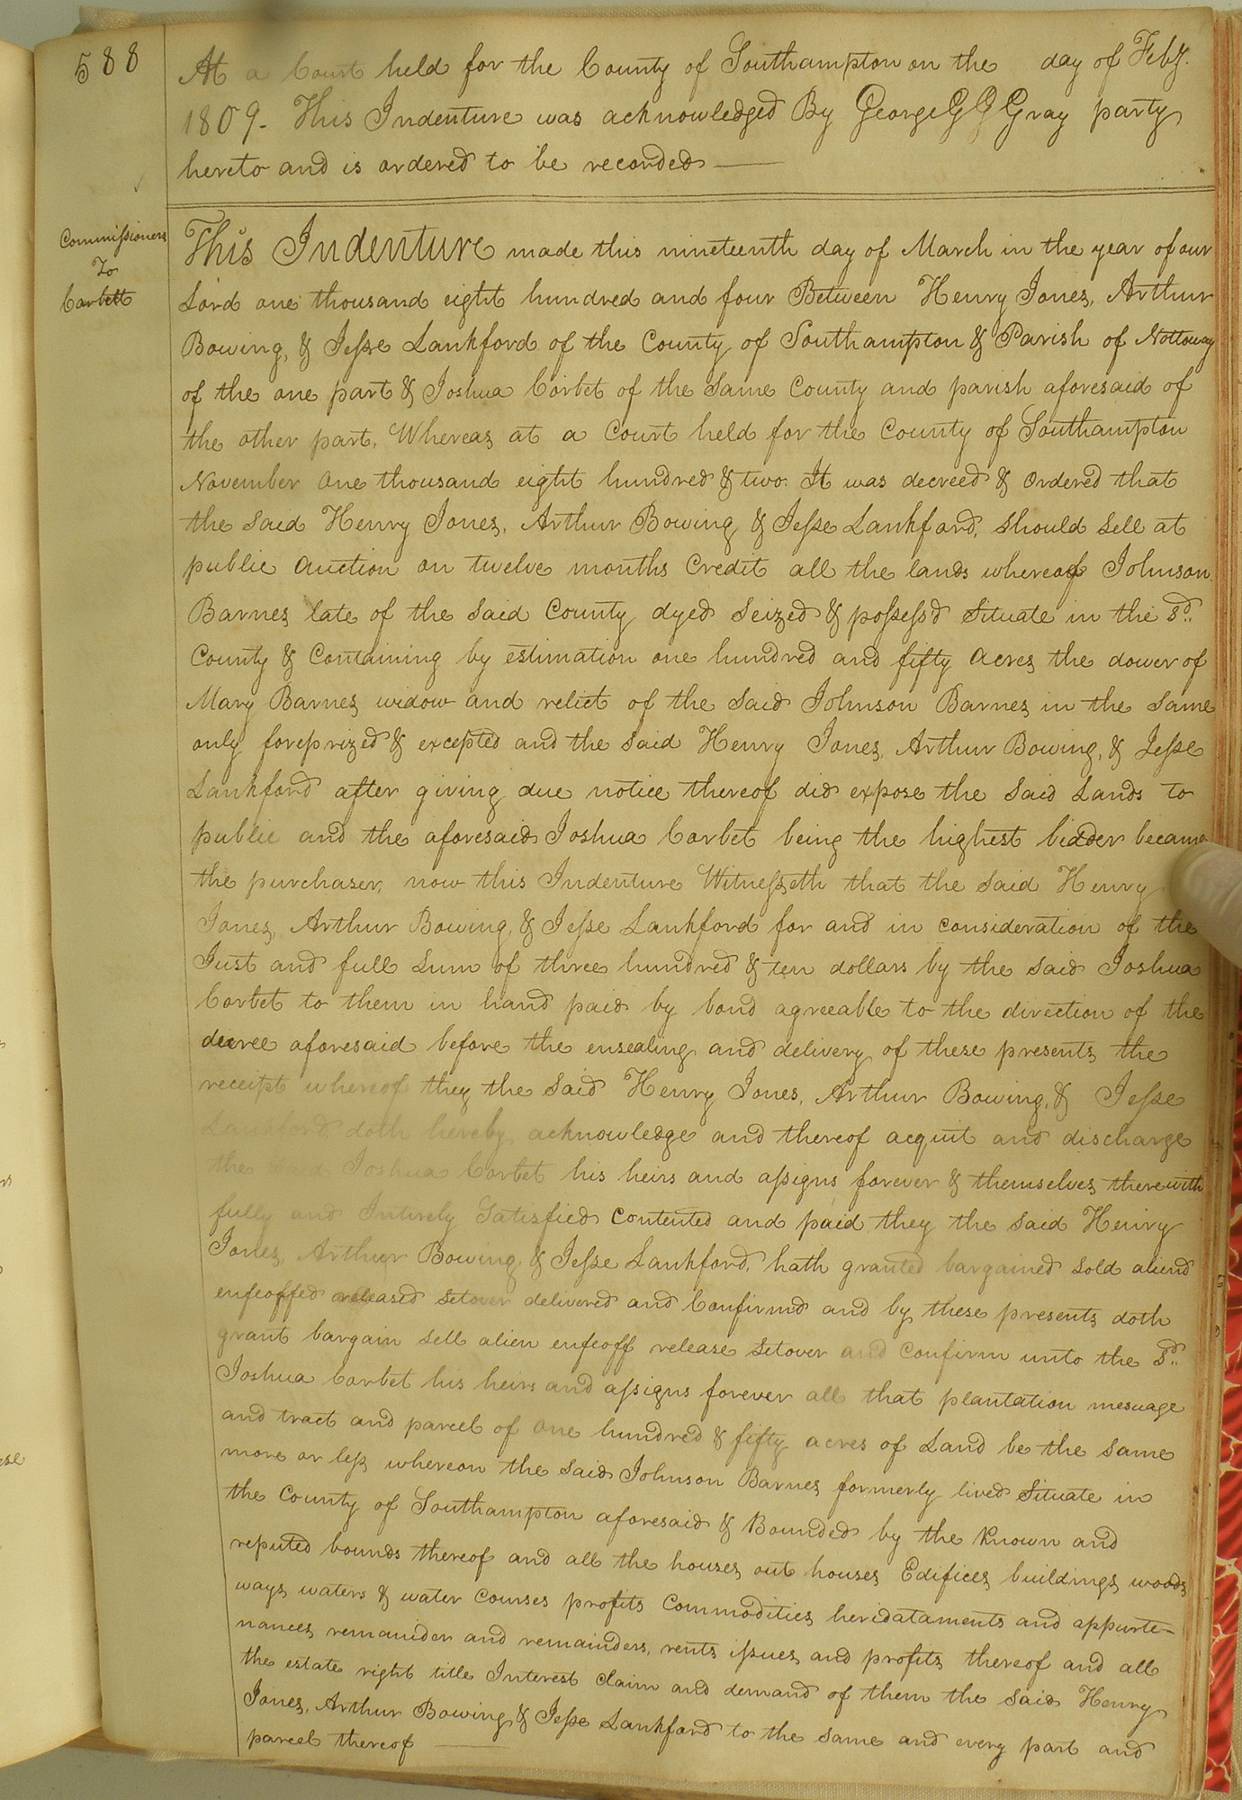 588
At a Court held for the County of Southampton on the day of Feby.
1809. This Indenture was acknowledged By George G G Gray party
hereto and is ordered to be recorded
Commissioners
To
Corbett
This Indenture made this nineteenth day of March in the year of our
Lord one thousand eight hundred and four Between Henry Jones, Arthur
Bowing, & Jesse Lankford of the County of Southampton & Parish of Nottoway
of the one part & Joshua Corbet of the Same County and parish aforesaid of
the other part, Whereas at a Court held for the County of Southampton
November one thousand eight hundred & two. It was decreed & ordered that
the said Henry Jones, Arthur Bowing & Jesse Lankford, should sell at
public auction on twelve months Credit all the lands whereof Johnson
Barnes late of the said County dyed seized & possess'd Situate in the sd..
County & Containing by estimation one hundred and fifty acres the dower of
Mary Barnes widow and relict of the said Johnson Barnes in the same
only foreprized & excepted and the said Henry Jones, Arthur Bowing, & Jesse
Lankford after giving due notice thereof did expose the said Lands to
public and the aforesaid Joshua Corbet being the highest bidder became
the purchaser, now this Indenture Witnesseth that the said Henry
Jones, Arthur Bowing, & Jesse Lankford for and in consideration of the
Just and full Sum of three hundred & ten dollars by the said Joshua
Corbet to them in hand paid by bond agreeable to the direction of the
decree aforesaid before the ensealing and delivery of these presents the
receipt whereof they the said Henry Jones, Arthur Bowing, & Jesse
Lankford doth hereby acknowledge and thereof acquit and discharge
the said Joshua Corbet his heirs and assigns forever & themselves therewith
fully and Intirely Satisfied contented and paid they the said Henry
Jones, Arthur Bowing & Jesse Lankford, hath granted bargained sold aliend
enfeoffed released setover delivered and Confirmd and by these presents doth
grant bargain sell alien enfeoff release setover and confirm unto the sd..
Joshua Corbet his heirs and assigns forever all that plantation mesuage
and tract and parcel of one hundred & fifty acres of Land be the same
more or less whereon the said Johnson Barnes formerly lived Situate in
the County of Southampton aforesaid & Bounded by the known and
reputed bounds thereof and all the houses out houses Edifices buildings woods
ways waters & water courses profits Commodities heridataments and appurte-
nances remainder and remainders, rents issues and profits thereof and all
the estate right title Interest claim and demand of them the said Henry
Jones, Arthur Bowing & Jesse Lankford to the same and every part and
parcel thereof